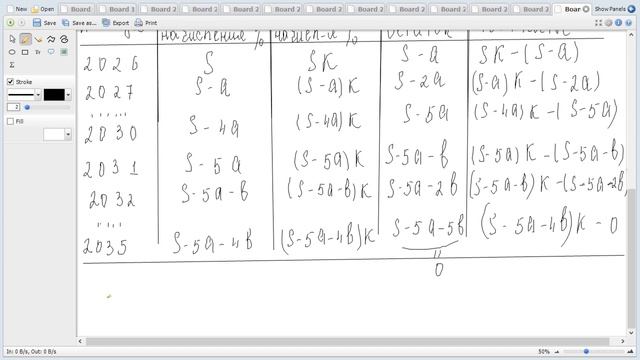 Board 2 Board 1 Board 2 Board 2 Board 2 Board 2 Board 2 Board 2 Board 2 Board 2 Boar Show Panels
New Open Save Save as... Print
Stroke
2
Fill
начисление % %
2026 S SK S-a SK-(S-a)
2027 S-a (S-a)K S-2a (S-a)K-(S-2a)
.....
2030 S-4a (S-4a)K S-5a (S-4a)K-(S-5a)
2031 S-5a (S-5a)K S-5a-b (S-5a)K-(S-5a-b)
2032 S-5a-b (S-5a-b)K S-5a-2b (S-5a-b)K-(S-5a-2b)
....
2035 S-5a-4b (S-5a-4b)K S-5a-5b (S-5a-4b)K-0
=
0
In: 0 B/s, Out: 0 B/s 50%